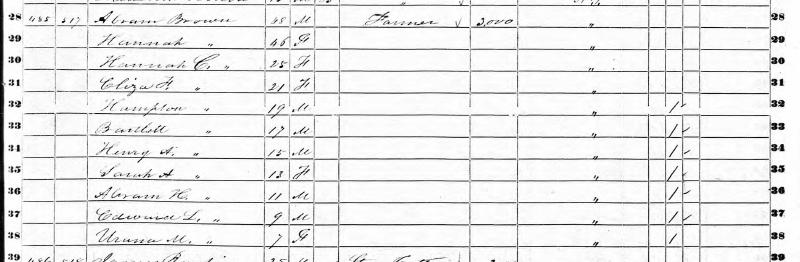 28 485 517 Abram Brown 48 M Farmer 3,000 " 28
29 Hannah " 46 F " 29
30 Hannah C. " 25 F " 30
31 Eliza F. " 21 F " 31
32 Hampton " 19 M " 1 32
33 Bartlett " 17 M " 1 33
34 Henry A. " 15 M " 1 34
35 Sarah A " 13 F " 1 35
36 Abram H. " 11 M " 1 36
37 Edward L. " 9 M " 1 37
38 M. " 7 F " 1 38
39 486 518 39